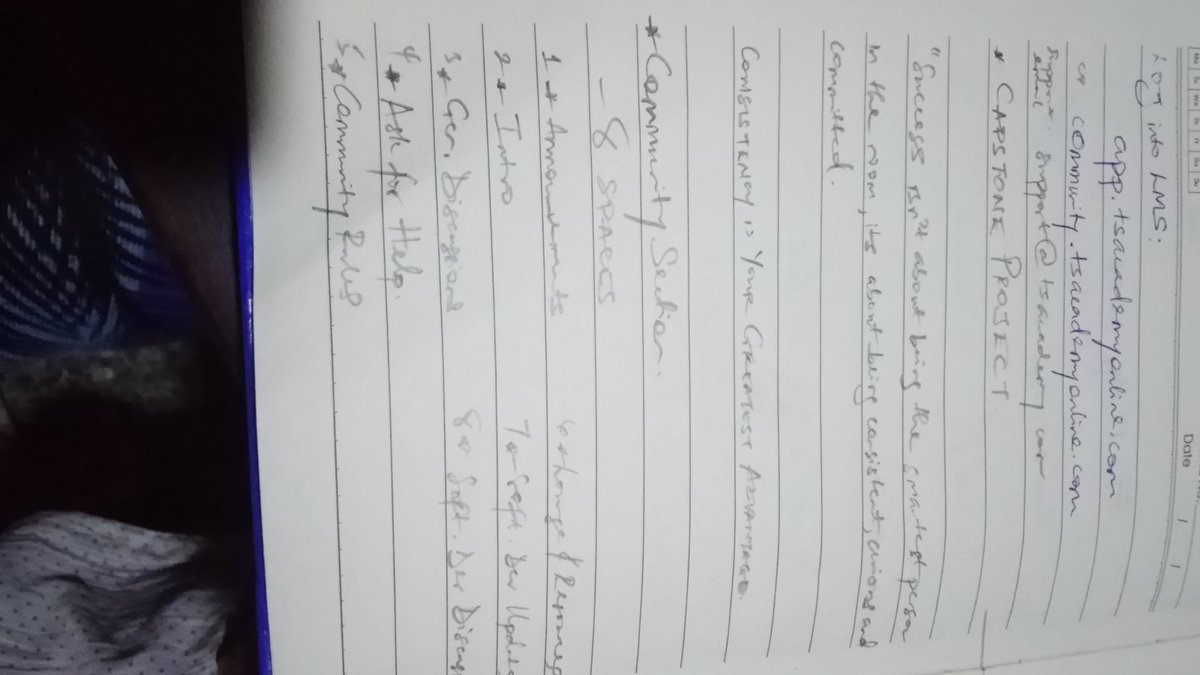 Date / /
Log into LMS:
app.tsacademyonline.com
or community.tsacademyonline.com
support email: support@tsacademy.com
* CAPSTONE PROJECT.
"Success isn't about being the smartest person
in the room, its about being consistent, curious and
committed.
CONSISTENCY is YOUR GREATEST ADVANTAGE.
* Community Section.
- 8 SPACES
1 * Announcements
2 * Intro
3 * Gen. Discussions
4 * Ask for Help.
5 * Community Rules
6 * Lounge & Resources
7 * Soft. Dev Update
8 * Soft. Dev Discuss